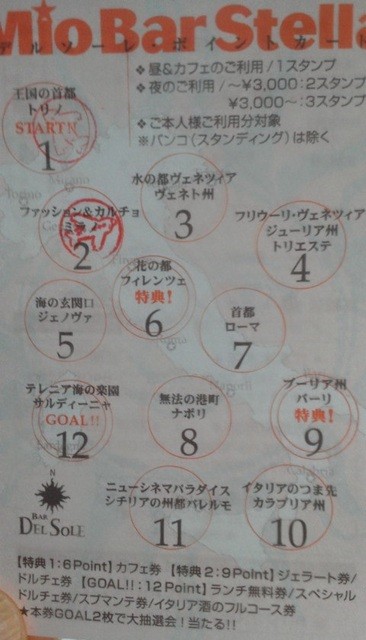 Mio Bar Stella
デルソーレ・ポイントカード
❖ 昼&カフェのご利用/1スタンプ
❖ 夜のご利用/〜¥3,000:2スタンプ
¥3,000〜:3スタンプ
❖ ご本人様ご利用分対象
※バンコ(スタンディング)は除く
王国の首都
トリノ
START!!
1
ファッション&カルチョ
ミラノ
2
水の都ヴェネツィア
ヴェネト州
3
フリウーリ・ヴェネツィア
ジューリア州
トリエステ
4
海の玄関口
ジェノヴァ
5
花の都
フィレンツェ
特典!
6
首都
ローマ
7
テレニア海の楽園
サルディーニャ
GOAL!!
12
無法の港町
ナポリ
8
プーリア州
バーリ
特典!
9
N
BAR
DEL SOLE
ニューシネマパラダイス
シチリアの州都パレルモ
11
イタリアのつま先
カラブリア州
10
【特典1:6Point】カフェ券【特典2:9Point】ジェラート券/
ドルチェ券【GOAL!!:12Point】ランチ無料券/スペシャル
ドルチェ券/スプマンテ券/イタリア酒のフルコース券
★本券GOAL2枚で大抽選会!当たる!!